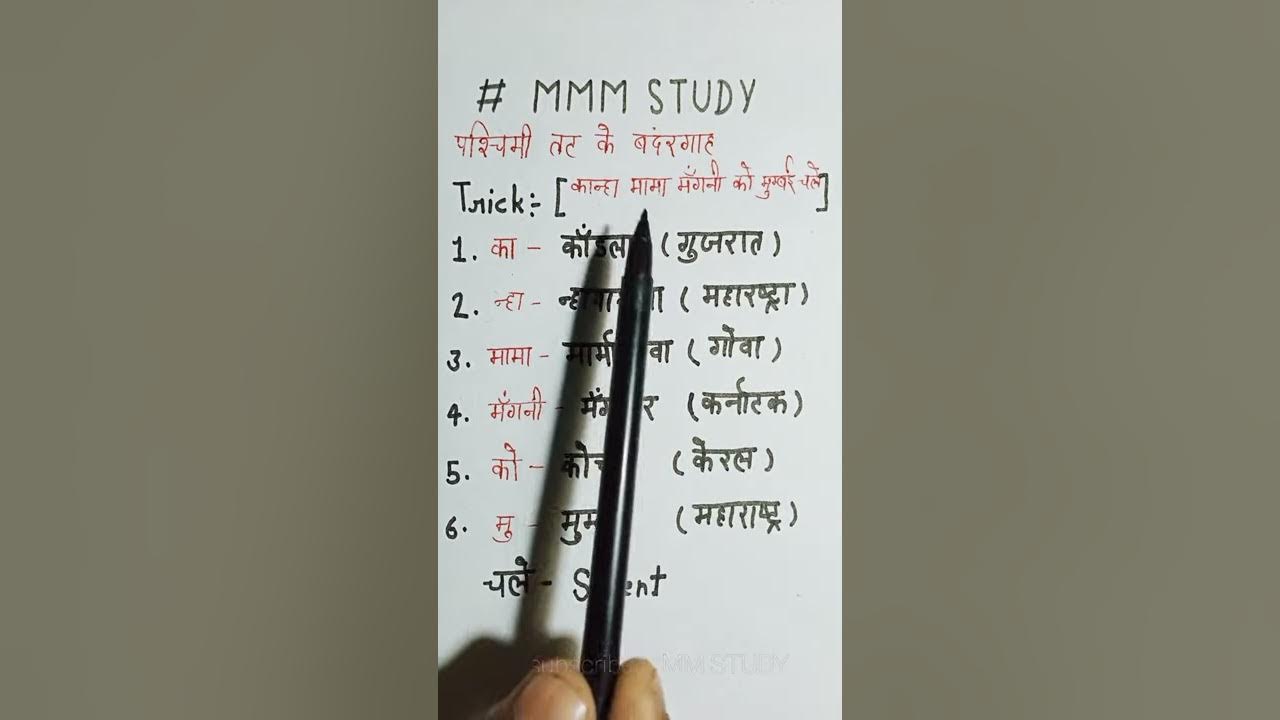 # MMM STUDY
पश्चिमी तट के बदंरगाह
Trick:- [कान्हा मामा मँगनी को मुम्बंई चले]
1. का - काँडला (गुजरात)
2. न्हा - (महारष्ट्रा)
3. मामा - (गोवा)
4. मँगनी - (कर्नाटक)
5. को - (केरल)
6. मु - (महाराष्ट्र)
चले -
subscribe MM STUDY